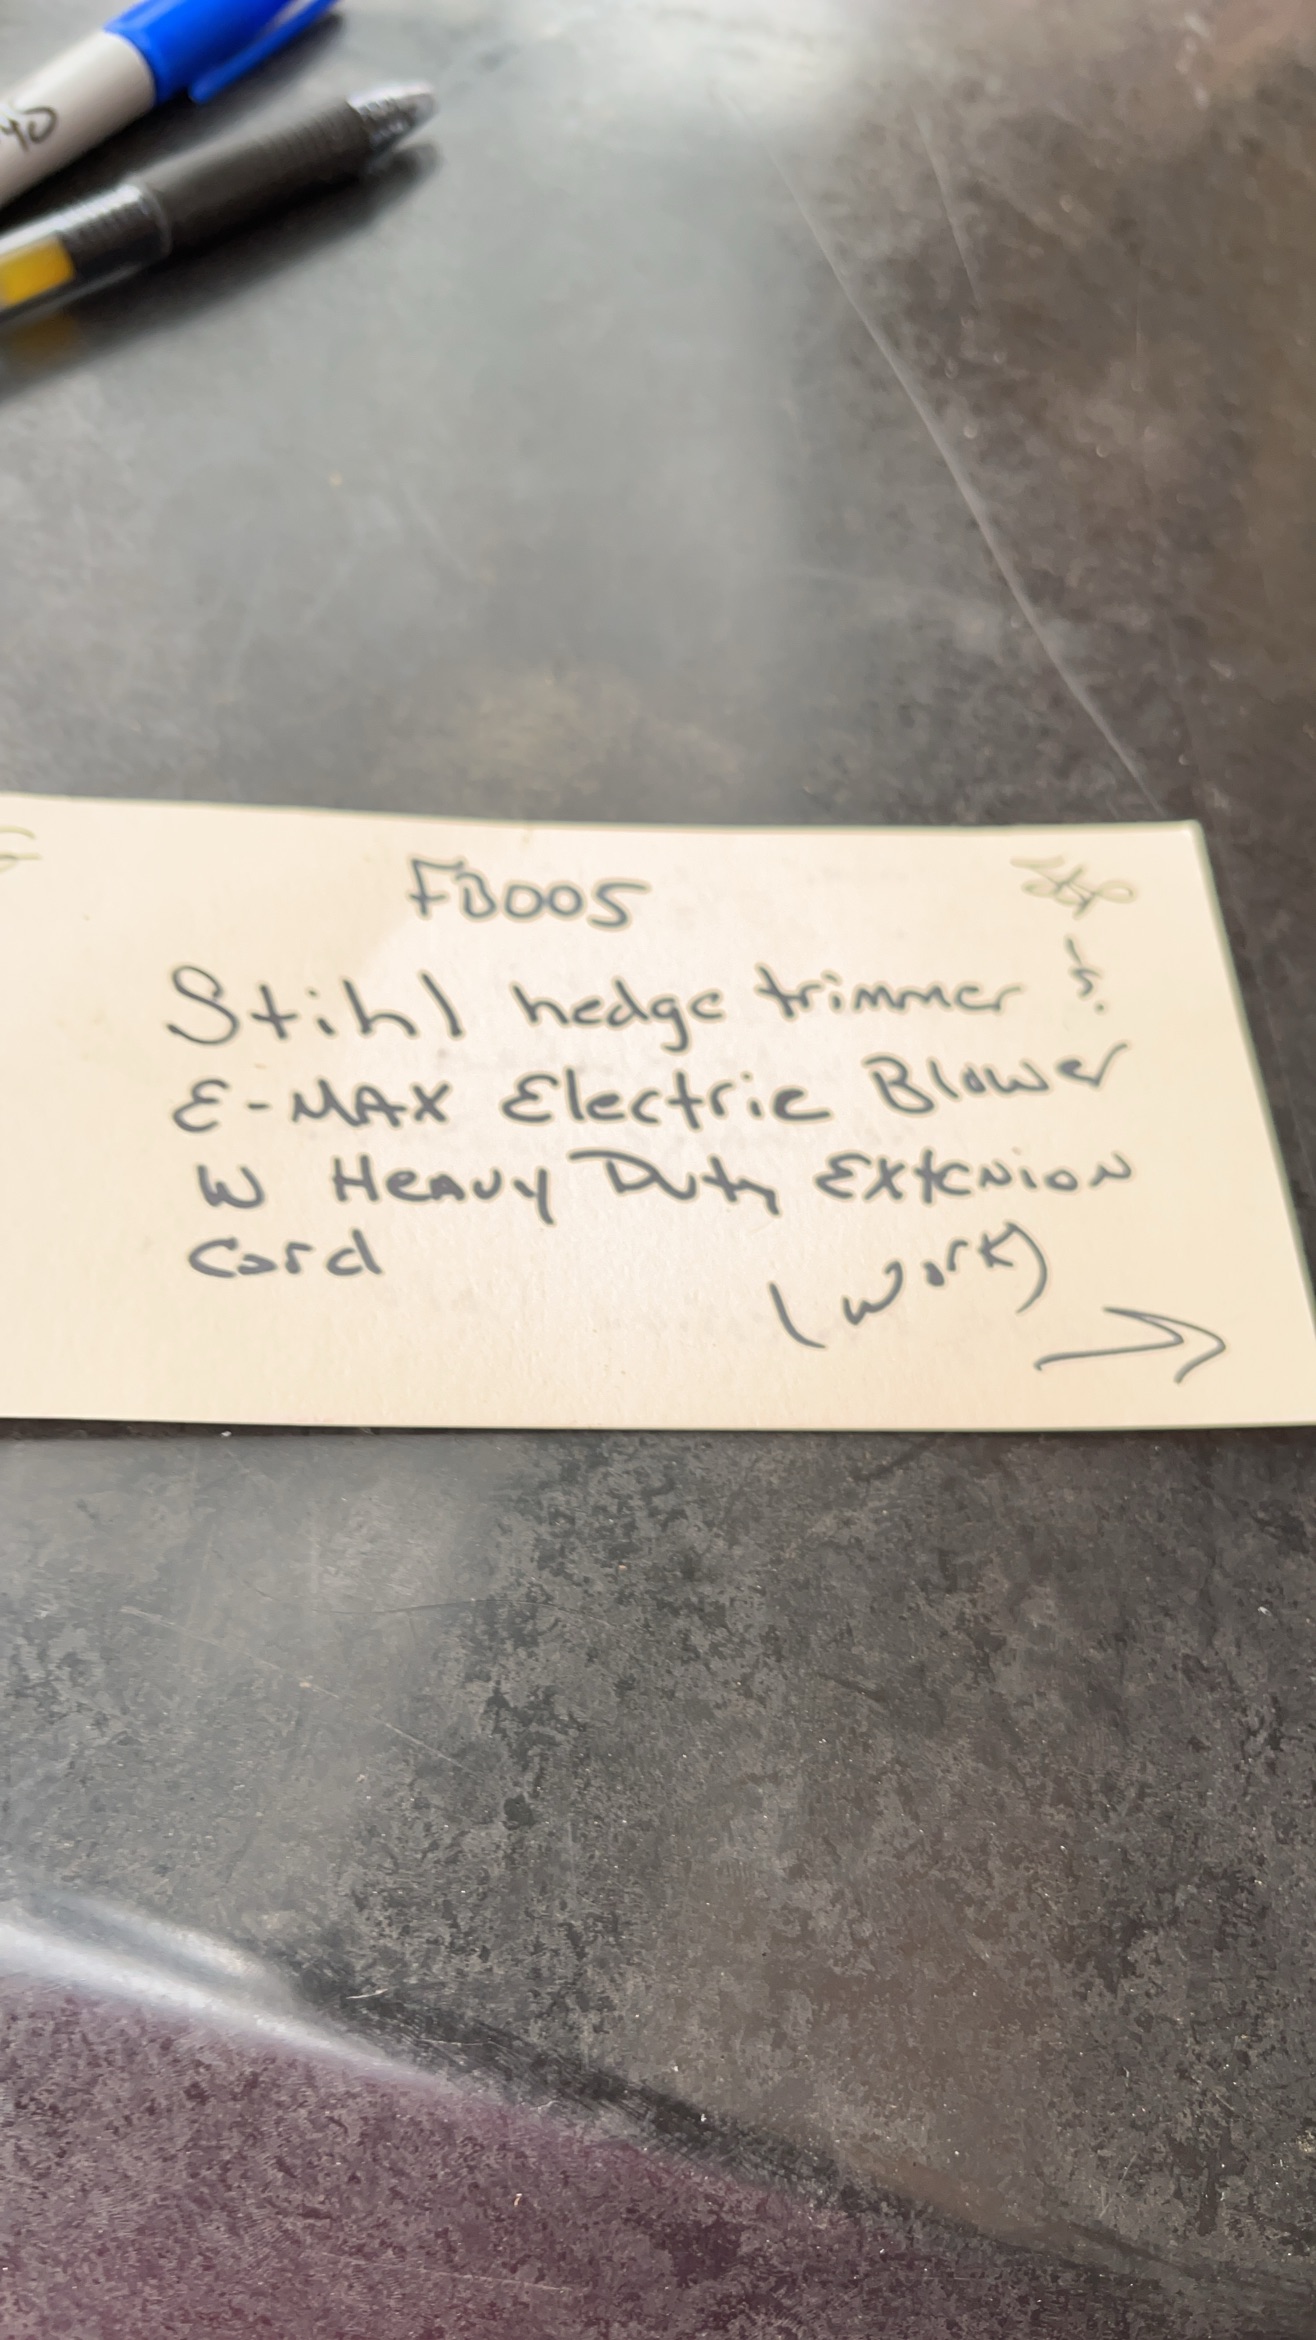 FB005
Stihl hedge trimmer &
E-MAX Electric Blower
W Heavy Duty Extenion
Cord
(work)